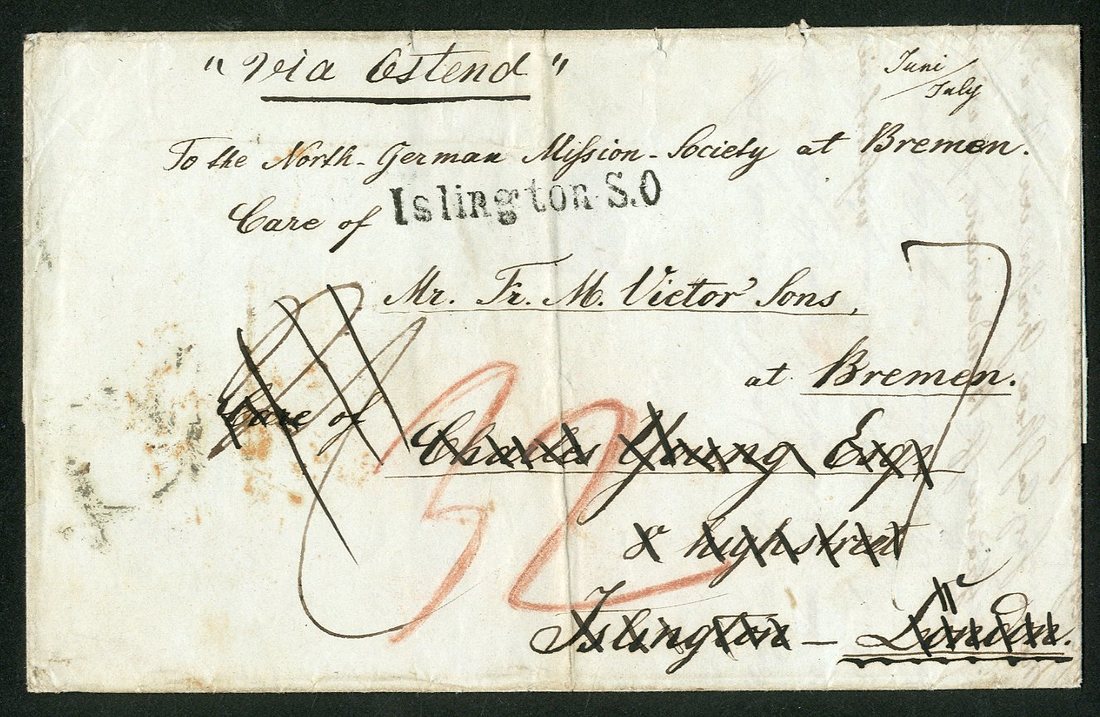 "Via Ostend"
Juni/July
To the North-German Mission-Society at Bremen.
Care of
Islington S.O
Mr. Fr. M. Victor Sons,
at Bremen.
Care of
Charles Young Esqr
8 highstreet
Islington – London.
32
7